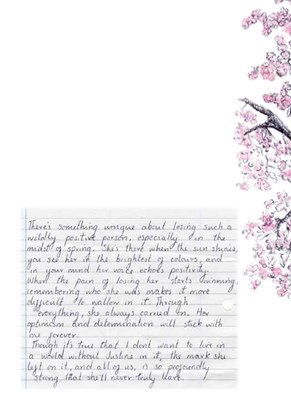 There's something unique about losing such a
wildly positive person, especially in the
midst of spring. She's there when the sun shines,
you see her in the brightest of colours, and
in your mind her voice echoes positivity.
When the pain of losing her starts winning,
remembering who she was makes it more
difficult to wallow in it. Through
everything, she always carried on. Her
optimism and determination will stick with
us forever.
Though it's true that I dont want to live in
a world without Justine in it, the mark she
left on it, and all of us, is so profoundly
strong that she'll never truly leave.